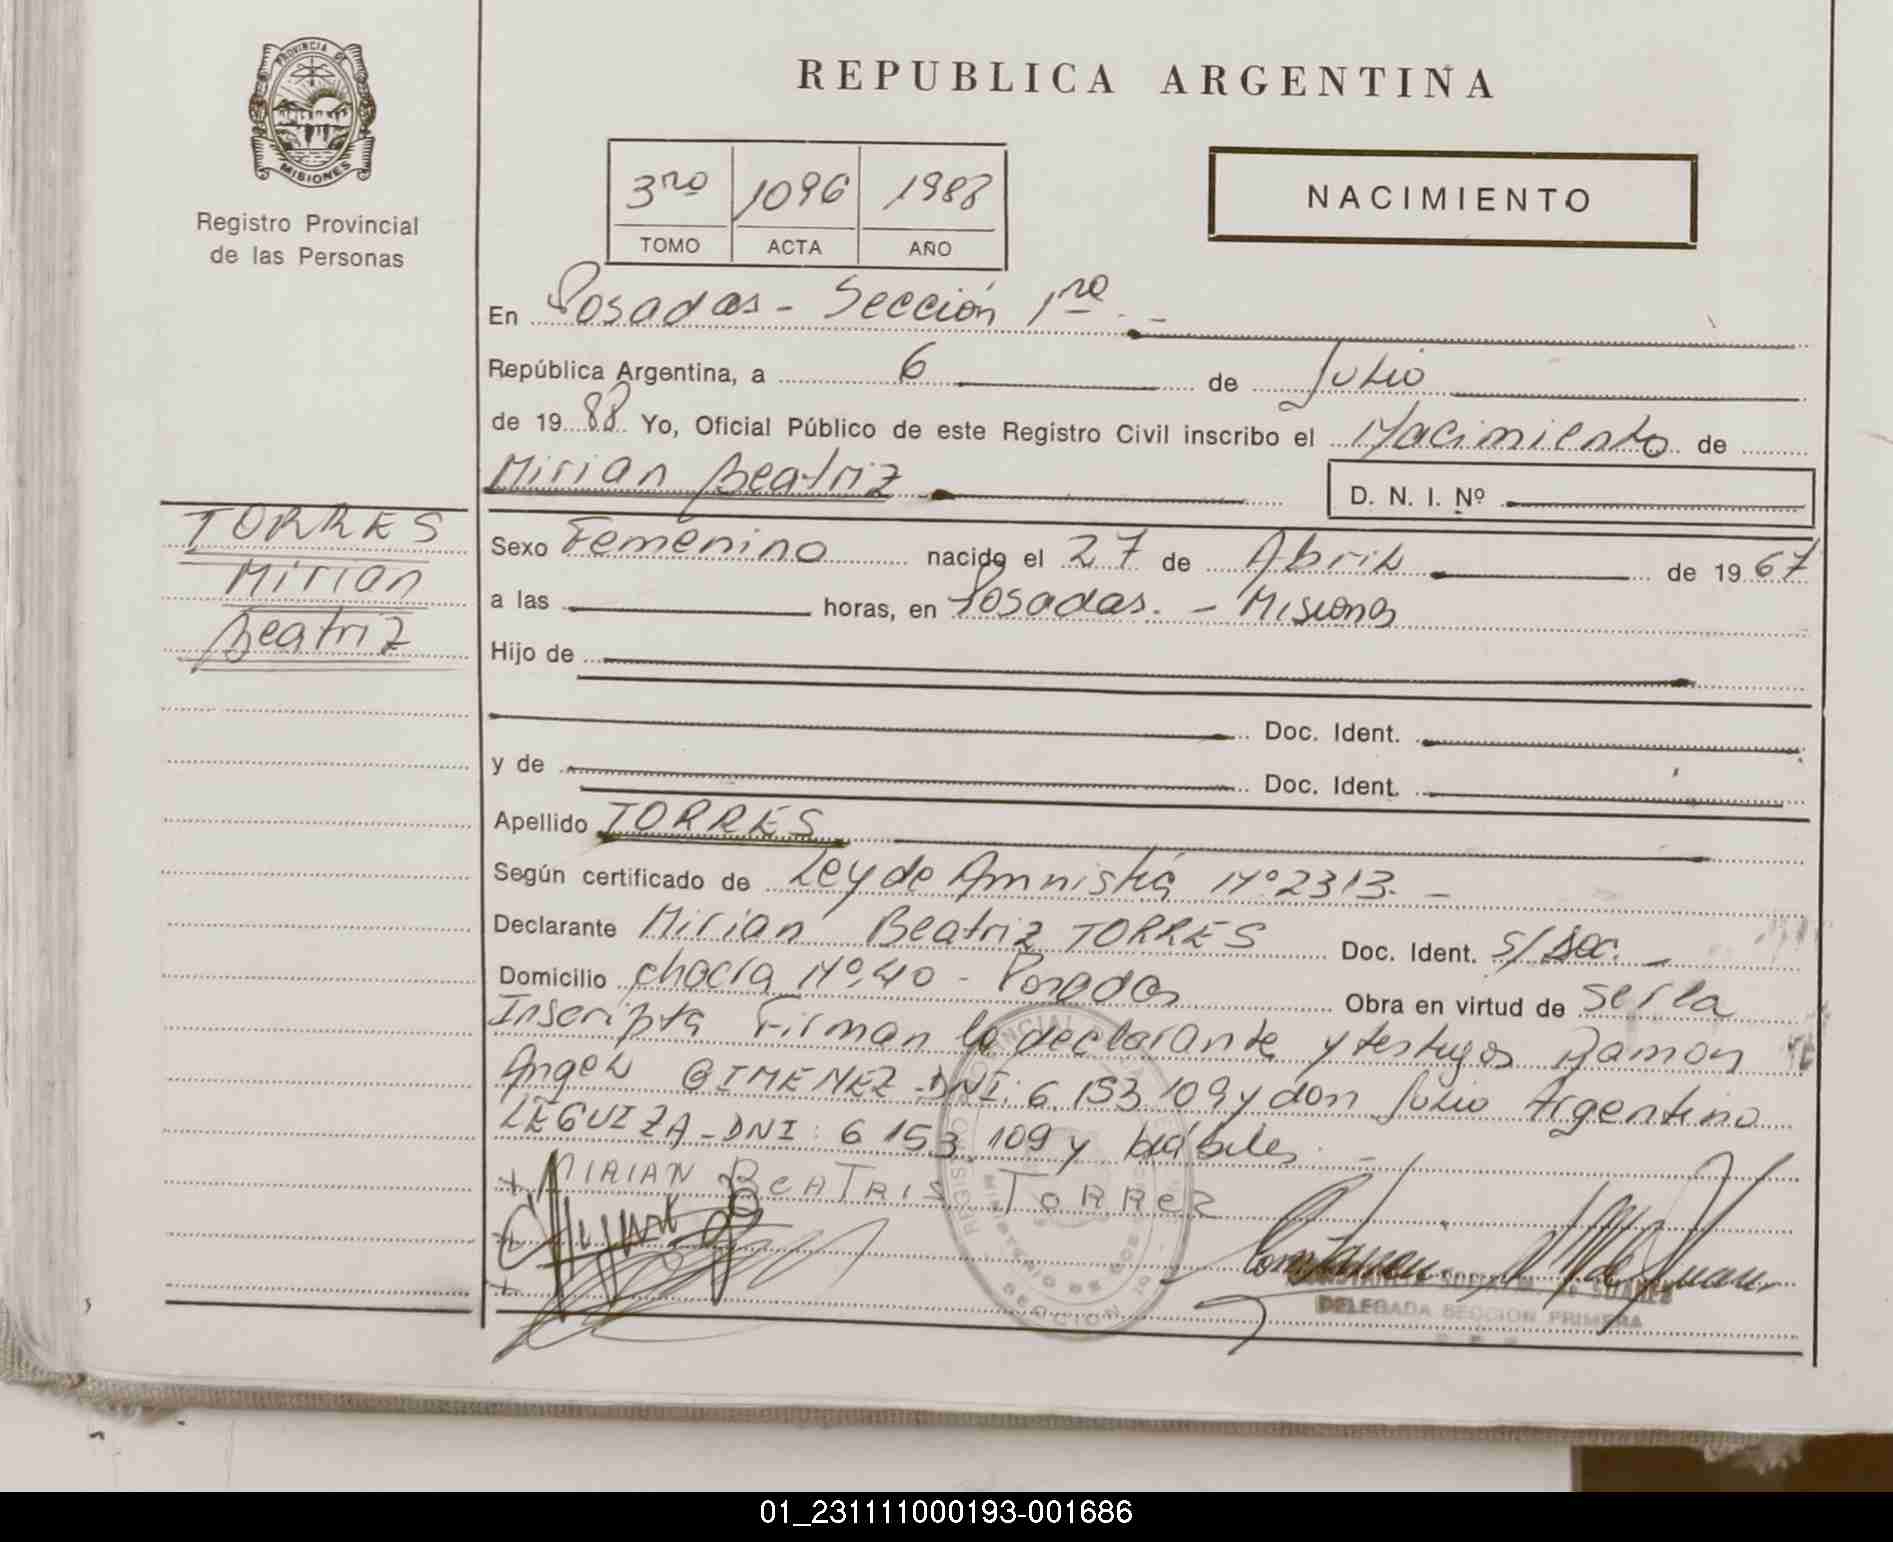 PROVINCIA DE
MISIONES
Registro Provincial
de las Personas
REPUBLICA ARGENTINA
3ro 1096 1988
TOMO ACTA AÑO
NACIMIENTO
En Posadas - Sección 1ra. -
República Argentina, a 6 de Julio
de 1988 Yo, Oficial Público de este Registro Civil inscribo el Nacimiento de
Mirian Beatriz D. N. I. Nº
TORRES
Mirian
Beatriz
Sexo Femenino nacido el 27 de Abril de 1967
a las horas, en Posadas. - Misiones
Hijo de
Doc. Ident.
y de Doc. Ident.
Apellido TORRES
Según certificado de Ley de Amnistía Nº 2313. -
Declarante Mirian Beatriz TORRES Doc. Ident. S/Doc. -
Domicilio chacra Nº 40 - Posadas Obra en virtud de ser la
Inscripta Firman la declarante y testigos Ramon
Angel GIMENEZ - DNI: 6 153 109 y don Julio Argentino
LEGUIZA - DNI: 6 153 109 y hábiles. -
MIRIAN BEATRIS TORREZ
DELEGADA SECCION PRIMERA
01_231111000193-001686